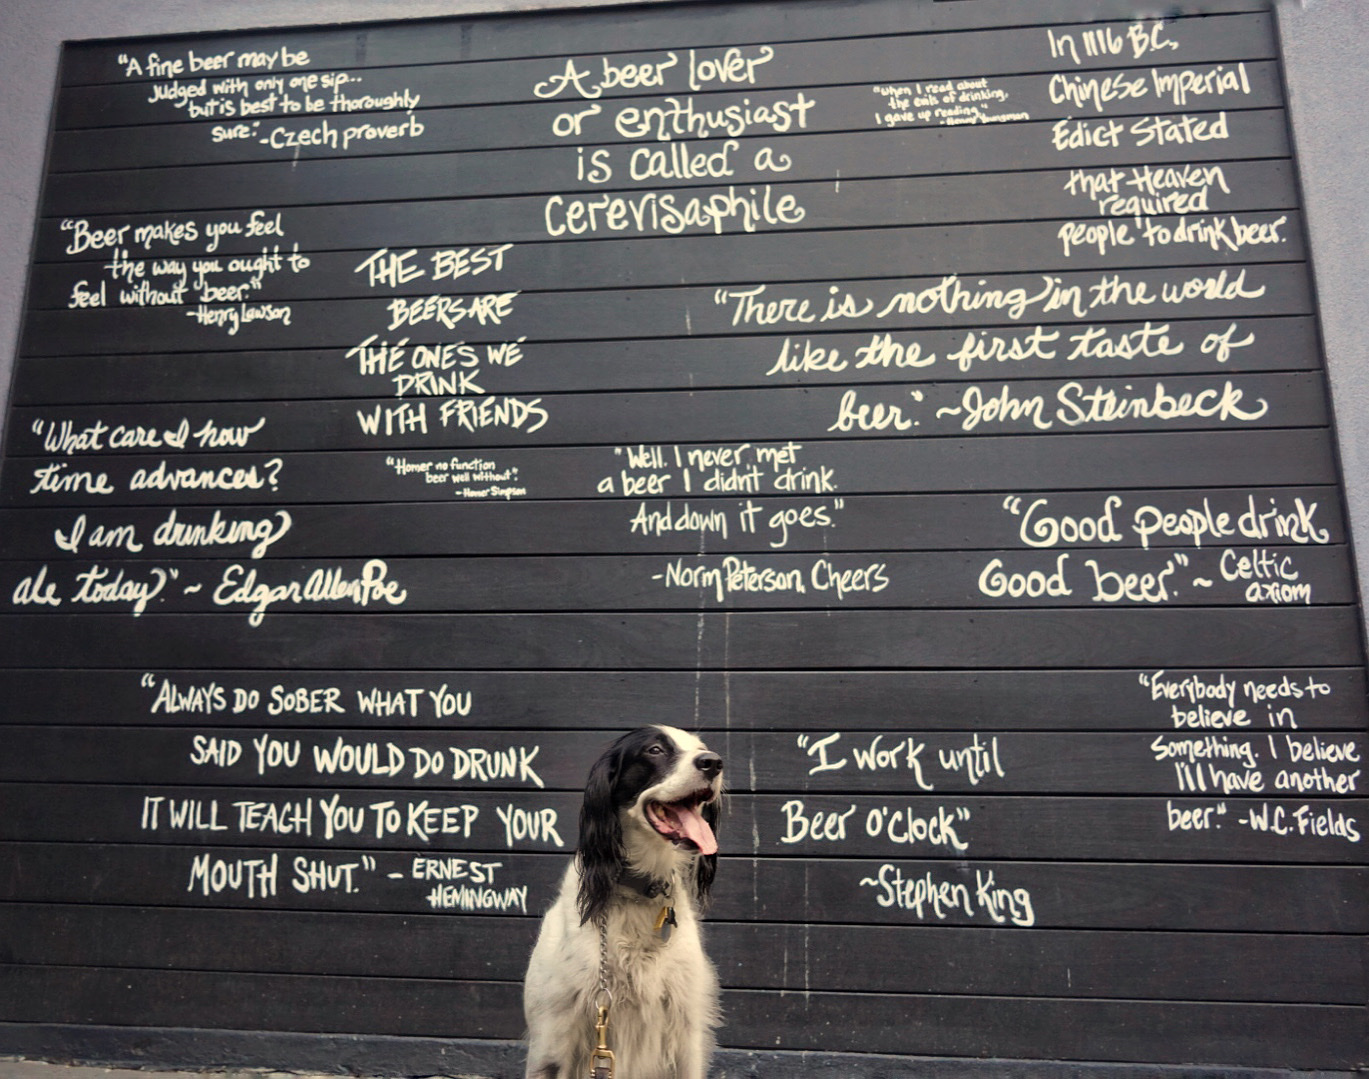 "A fine beer may be
Judged with only one sip...
but is best to be thoroughly
sure." -Czech proverb
A beer lover
or enthusiast
is called a
cerevisaphile
"When I read about
the evils of drinking,
I gave up reading."
-Henny Youngman
In 1116 B.C.,
Chinese Imperial
Edict Stated
that Heaven
required
people to drink beer.
"Beer makes you feel
the way you ought to
feel without beer."
-Henry Lawson
THE BEST
BEERS ARE
THE ONES WE
DRINK
WITH FRIENDS
"There is nothing in the world
like the first taste of
beer." ~John Steinbeck
"What care I how
time advances?
I am drinking
ale today." ~ Edgar Allen Poe
"Homer no function
beer well without".
-Homer Simpson
"Well. I never met
a beer I didn't drink.
And down it goes."
-Norm Peterson, Cheers
"Good people drink
Good beer." ~ Celtic
axiom
"ALWAYS DO SOBER WHAT YOU
SAID YOU WOULD DO DRUNK
IT WILL TEACH YOU TO KEEP YOUR
MOUTH SHUT." - ERNEST
HEMINGWAY
"I work until
Beer O'Clock"
~Stephen King
"Everybody needs to
believe in
Something. I believe
I'll have another
beer." -W.C. Fields